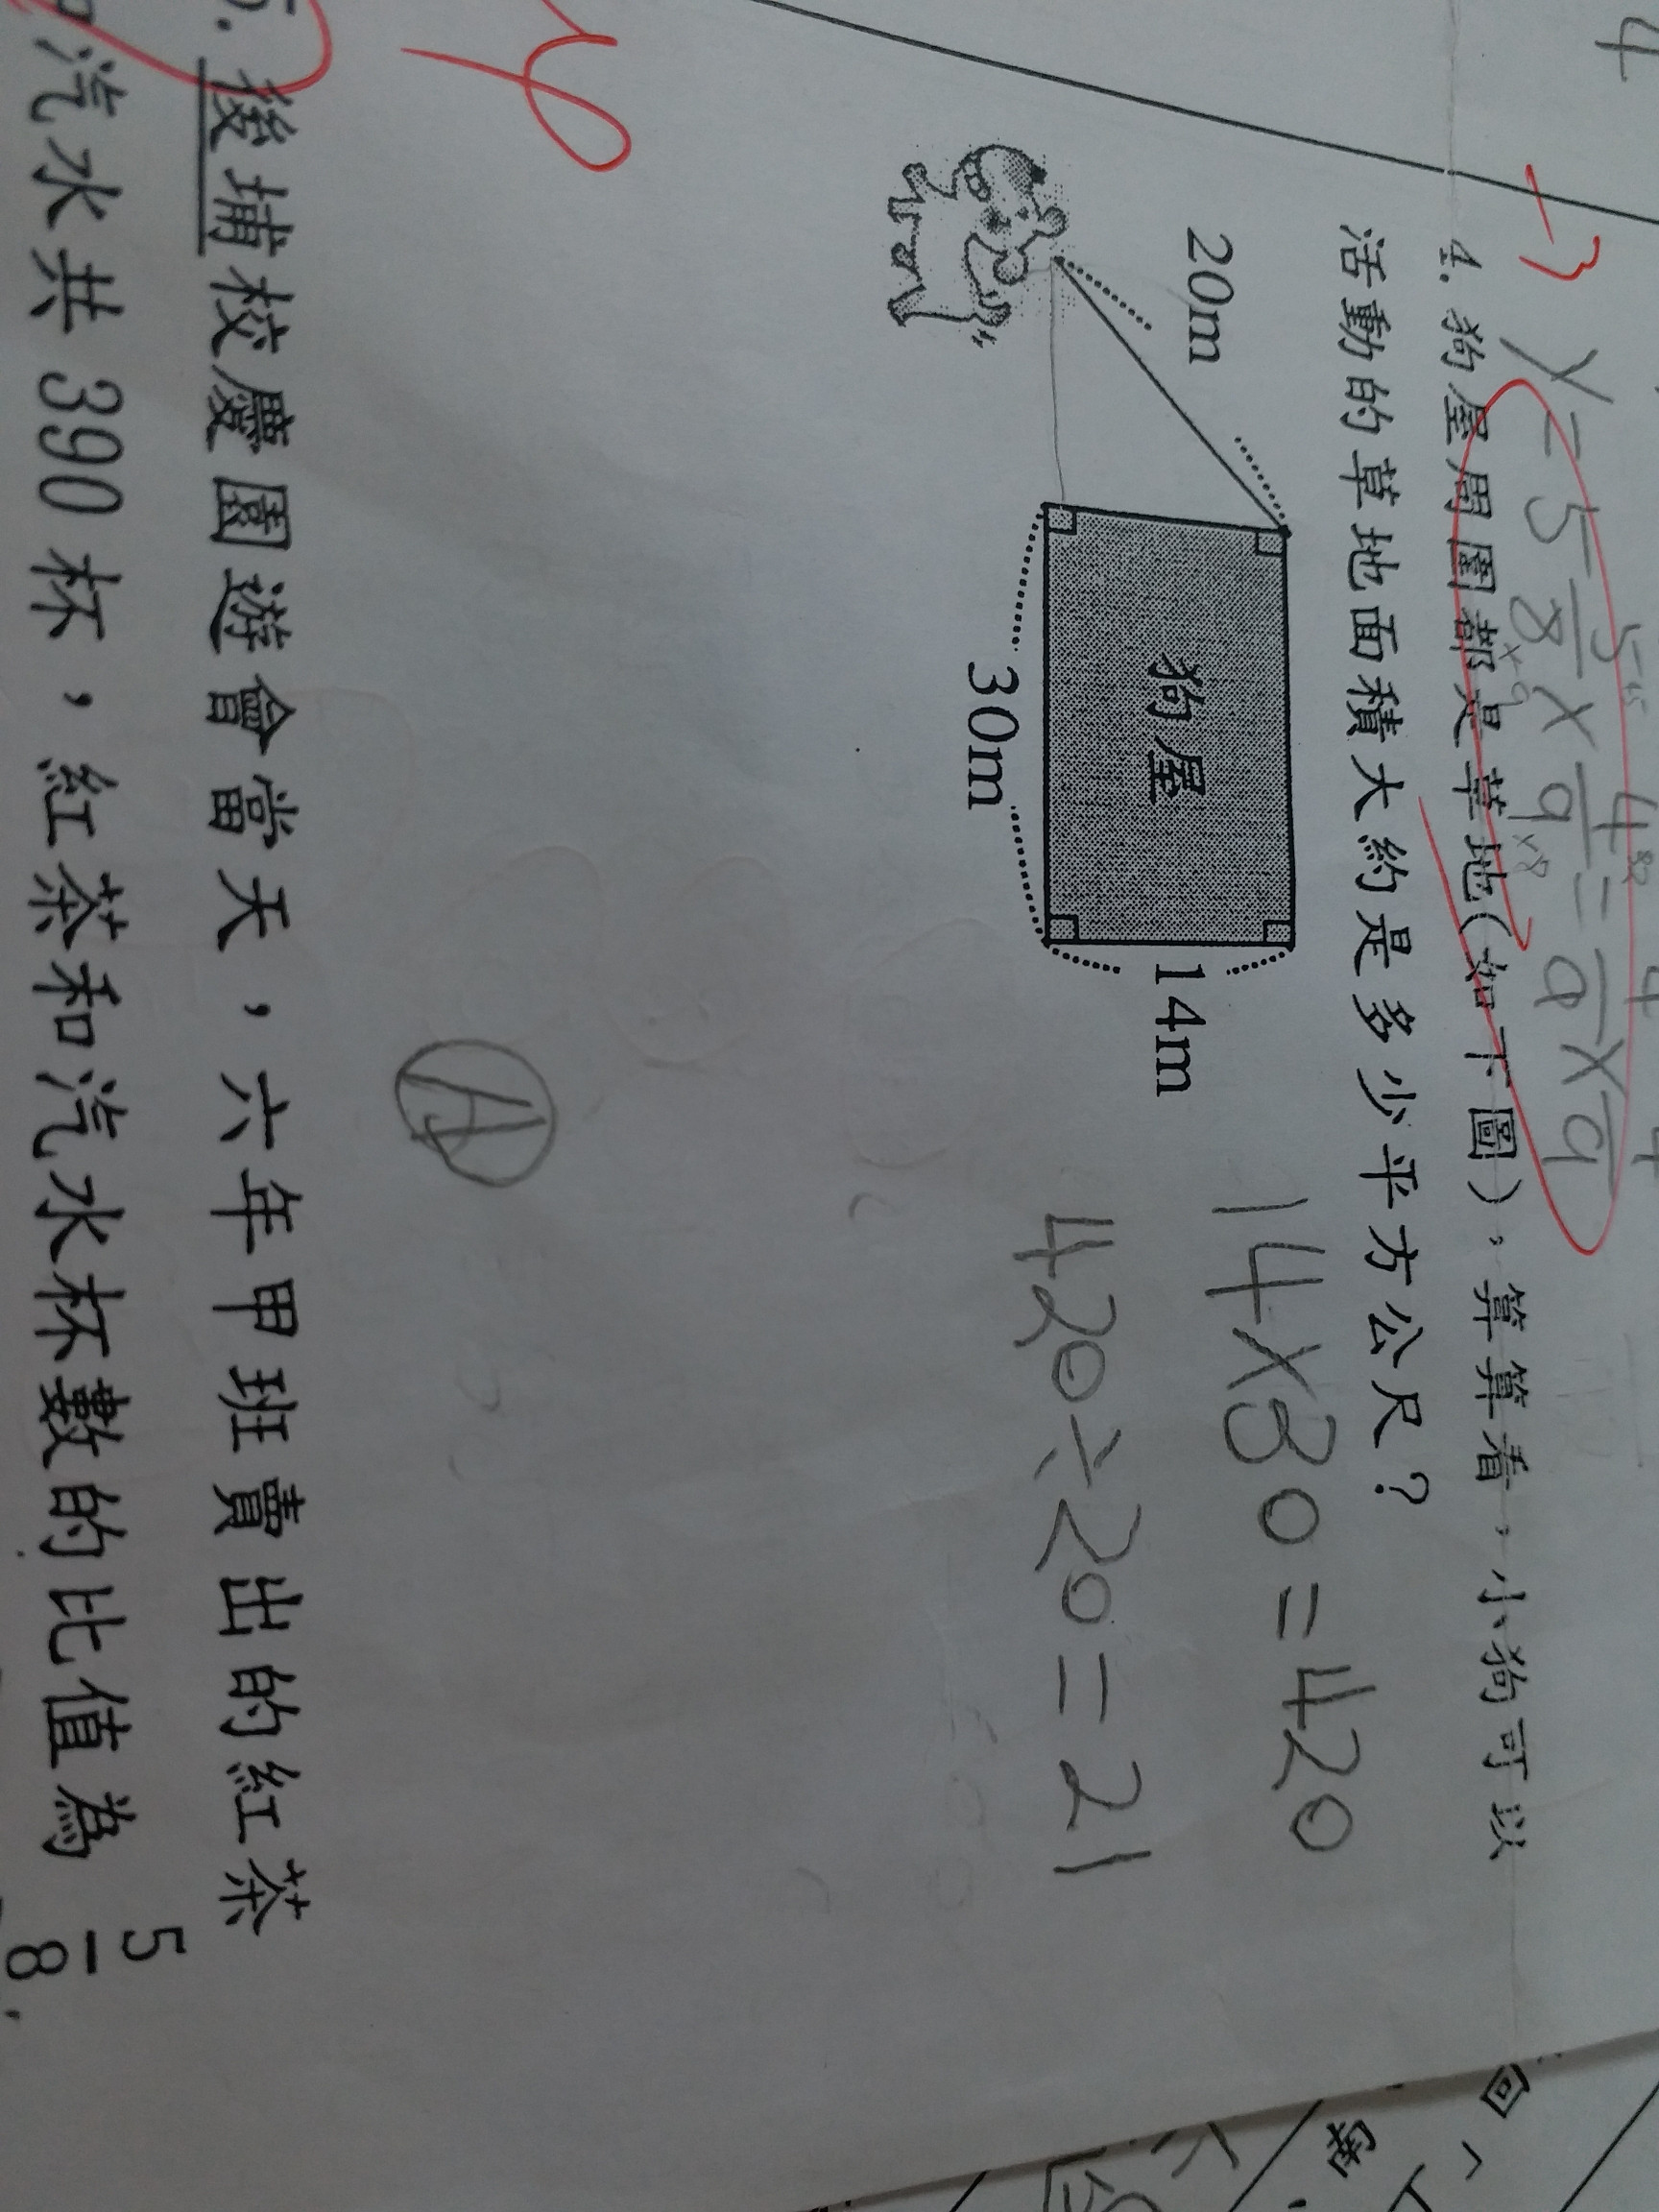 4
-3
4. 狗屋周圍都是草地(如下圖)，算算看，小狗可以
活動的草地面積大約是多少平方公尺？
20m
狗屋
14m
30m
14×30=420
420÷20=21
後埔校慶園遊會當天，六年甲班賣出的紅茶
汽水共 390 杯，紅茶和汽水杯數的比值為 5/8，